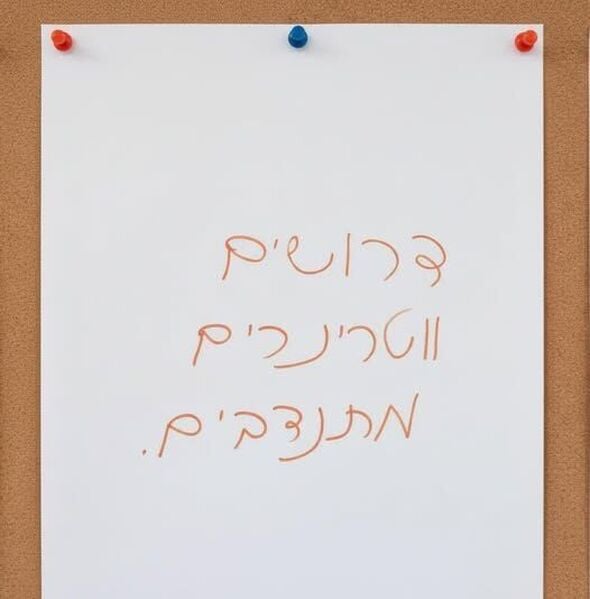 דרושים
ווטרינרים
מתנדבים.